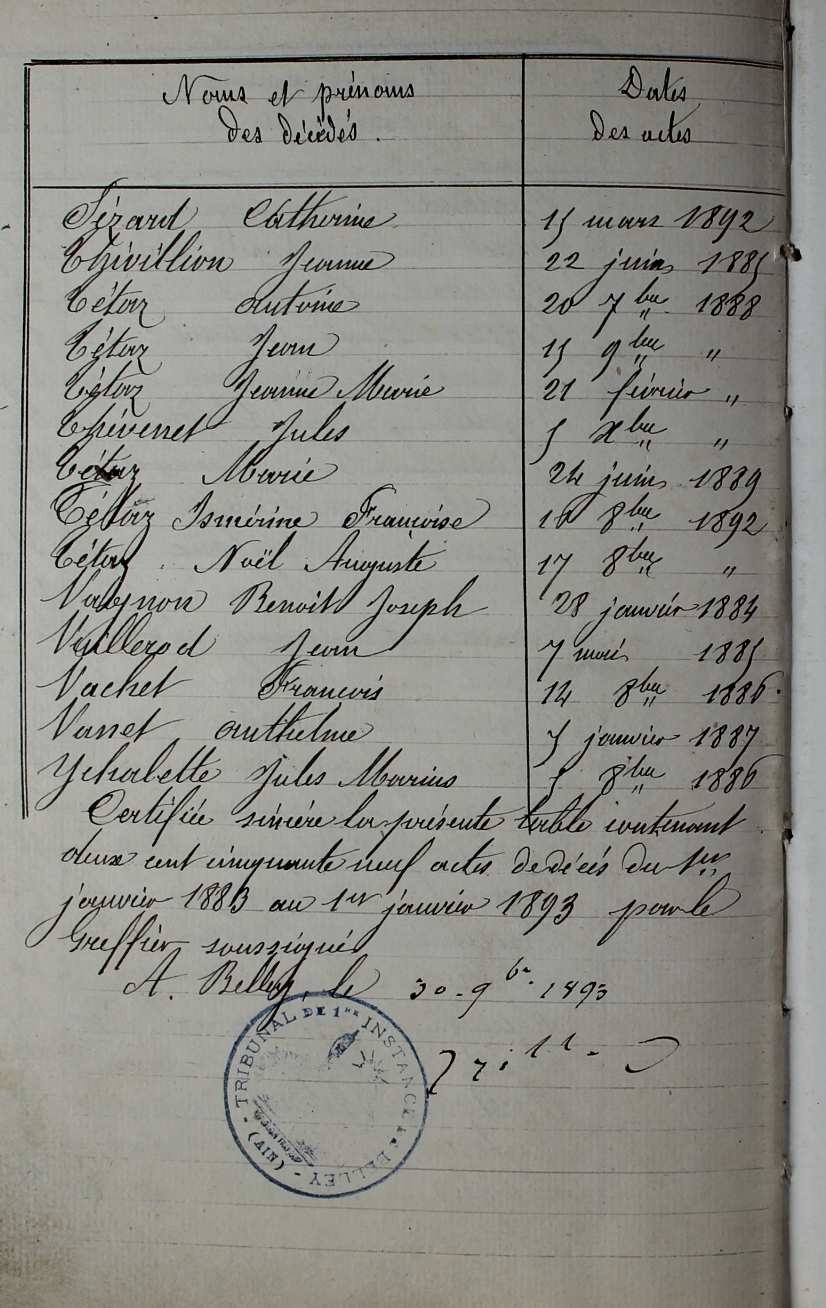 Noms et prénoms
des décédés.
Dates
des actes
Sézard Catherine 15 mars 1892
Thivillion Jeanne 22 juin 1885
Tétaz Antoine 20 7bre 1888
Tétaz Jean 15 9bre "
Tétaz Jeanne Marie 21 février "
Thévenet Jules 5 Xbre "
Tétaz Marie 24 juin 1889
Tétaz Ismérine Francoise 16 8bre 1892
Tétaz Noël Auguste 17 8bre "
Vagnon Benoit Joseph 28 janvier 1884
Vuillerod Jean 7 mai 1885
Vachet Francois 14 8bre 1886
Vanet Anthelme 5 janvier 1887
Ychalette Jules Marius 5 8bre 1886
Certifiée sincére la présente table contenant
deux cent cinquante neuf actes de décés du 1er
janvier 1883 au 1er janvier 1893 par le
Greffier soussigné
A. Belley, le 30 - 9bre 1893
TRIBUNAL DE 1RE INSTANCE DE BELLEY - (AIN) -